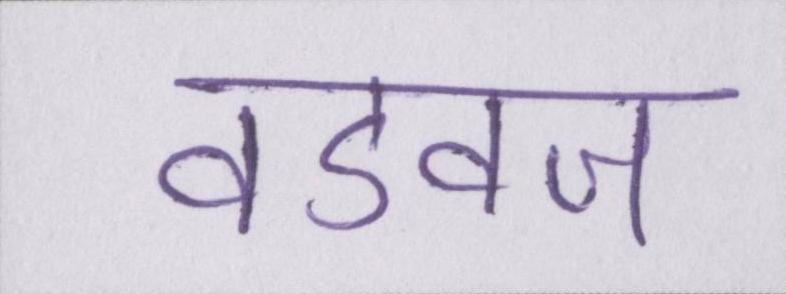 वडवज